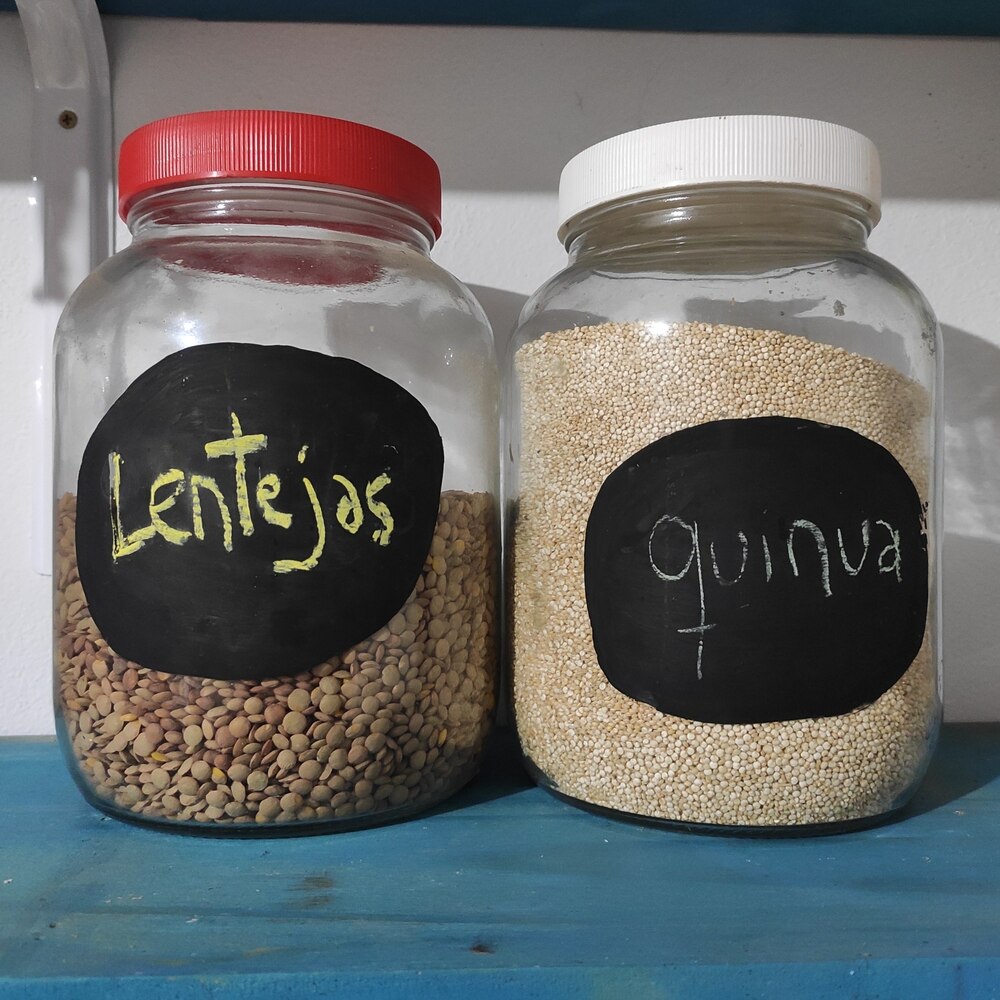 Lentejas
quinua